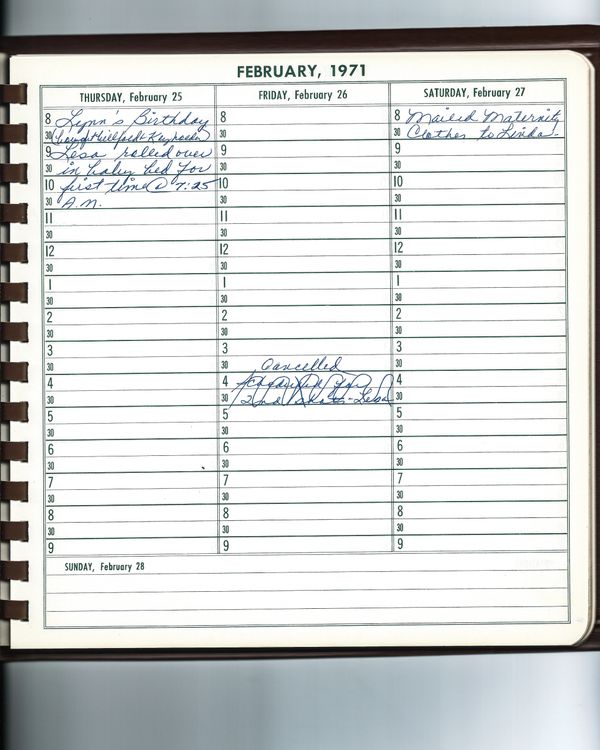 FEBRUARY, 1971
THURSDAY, February 25
8 Lynn's Birthday
30
9 Lesa rolled over
30 in baby bed for
10 first time @ 7:25
30 A.M.
11
30
12
30
1
30
2
30
3
30
4
30
5
30
6
30
7
30
8
30
9
FRIDAY, February 26
8
30
9
30
10
30
11
30
12
30
1
30
2
30
3
30 Cancelled
4 for
30 2nd shots - Lesa
5
30
6
30
7
30
8
30
9
SATURDAY, February 27
8 Mailed Maternity
30 Clothes to Linda.
9
30
10
30
11
30
12
30
1
30
2
30
3
30
4
30
5
30
6
30
7
30
8
30
9
SUNDAY, February 28